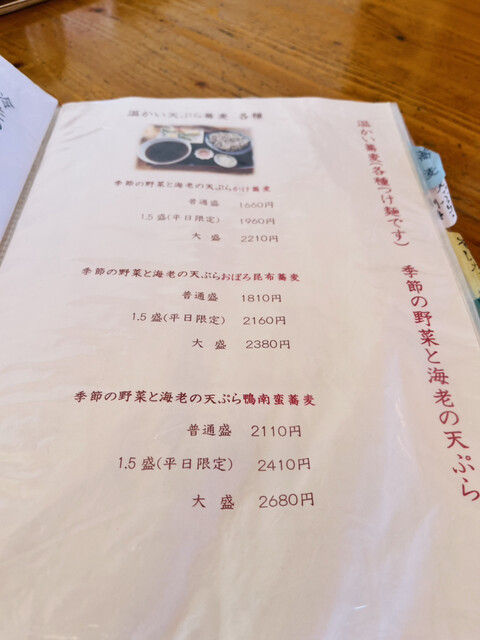 温かい天ぷら蕎麦 各種
季節の野菜と海老の天ぷらかけ蕎麦
普通盛 1660円
1.5盛(平日限定) 1960円
大盛 2210円
季節の野菜と海老の天ぷらおぼろ昆布蕎麦
普通盛 1810円
1.5盛(平日限定) 2160円
大盛 2380円
季節の野菜と海老の天ぷら鴨南蛮蕎麦
普通盛 2110円
1.5盛(平日限定) 2410円
大盛 2680円
温かい蕎麦(各種つけ麺です) 季節の野菜と海老の天ぷら